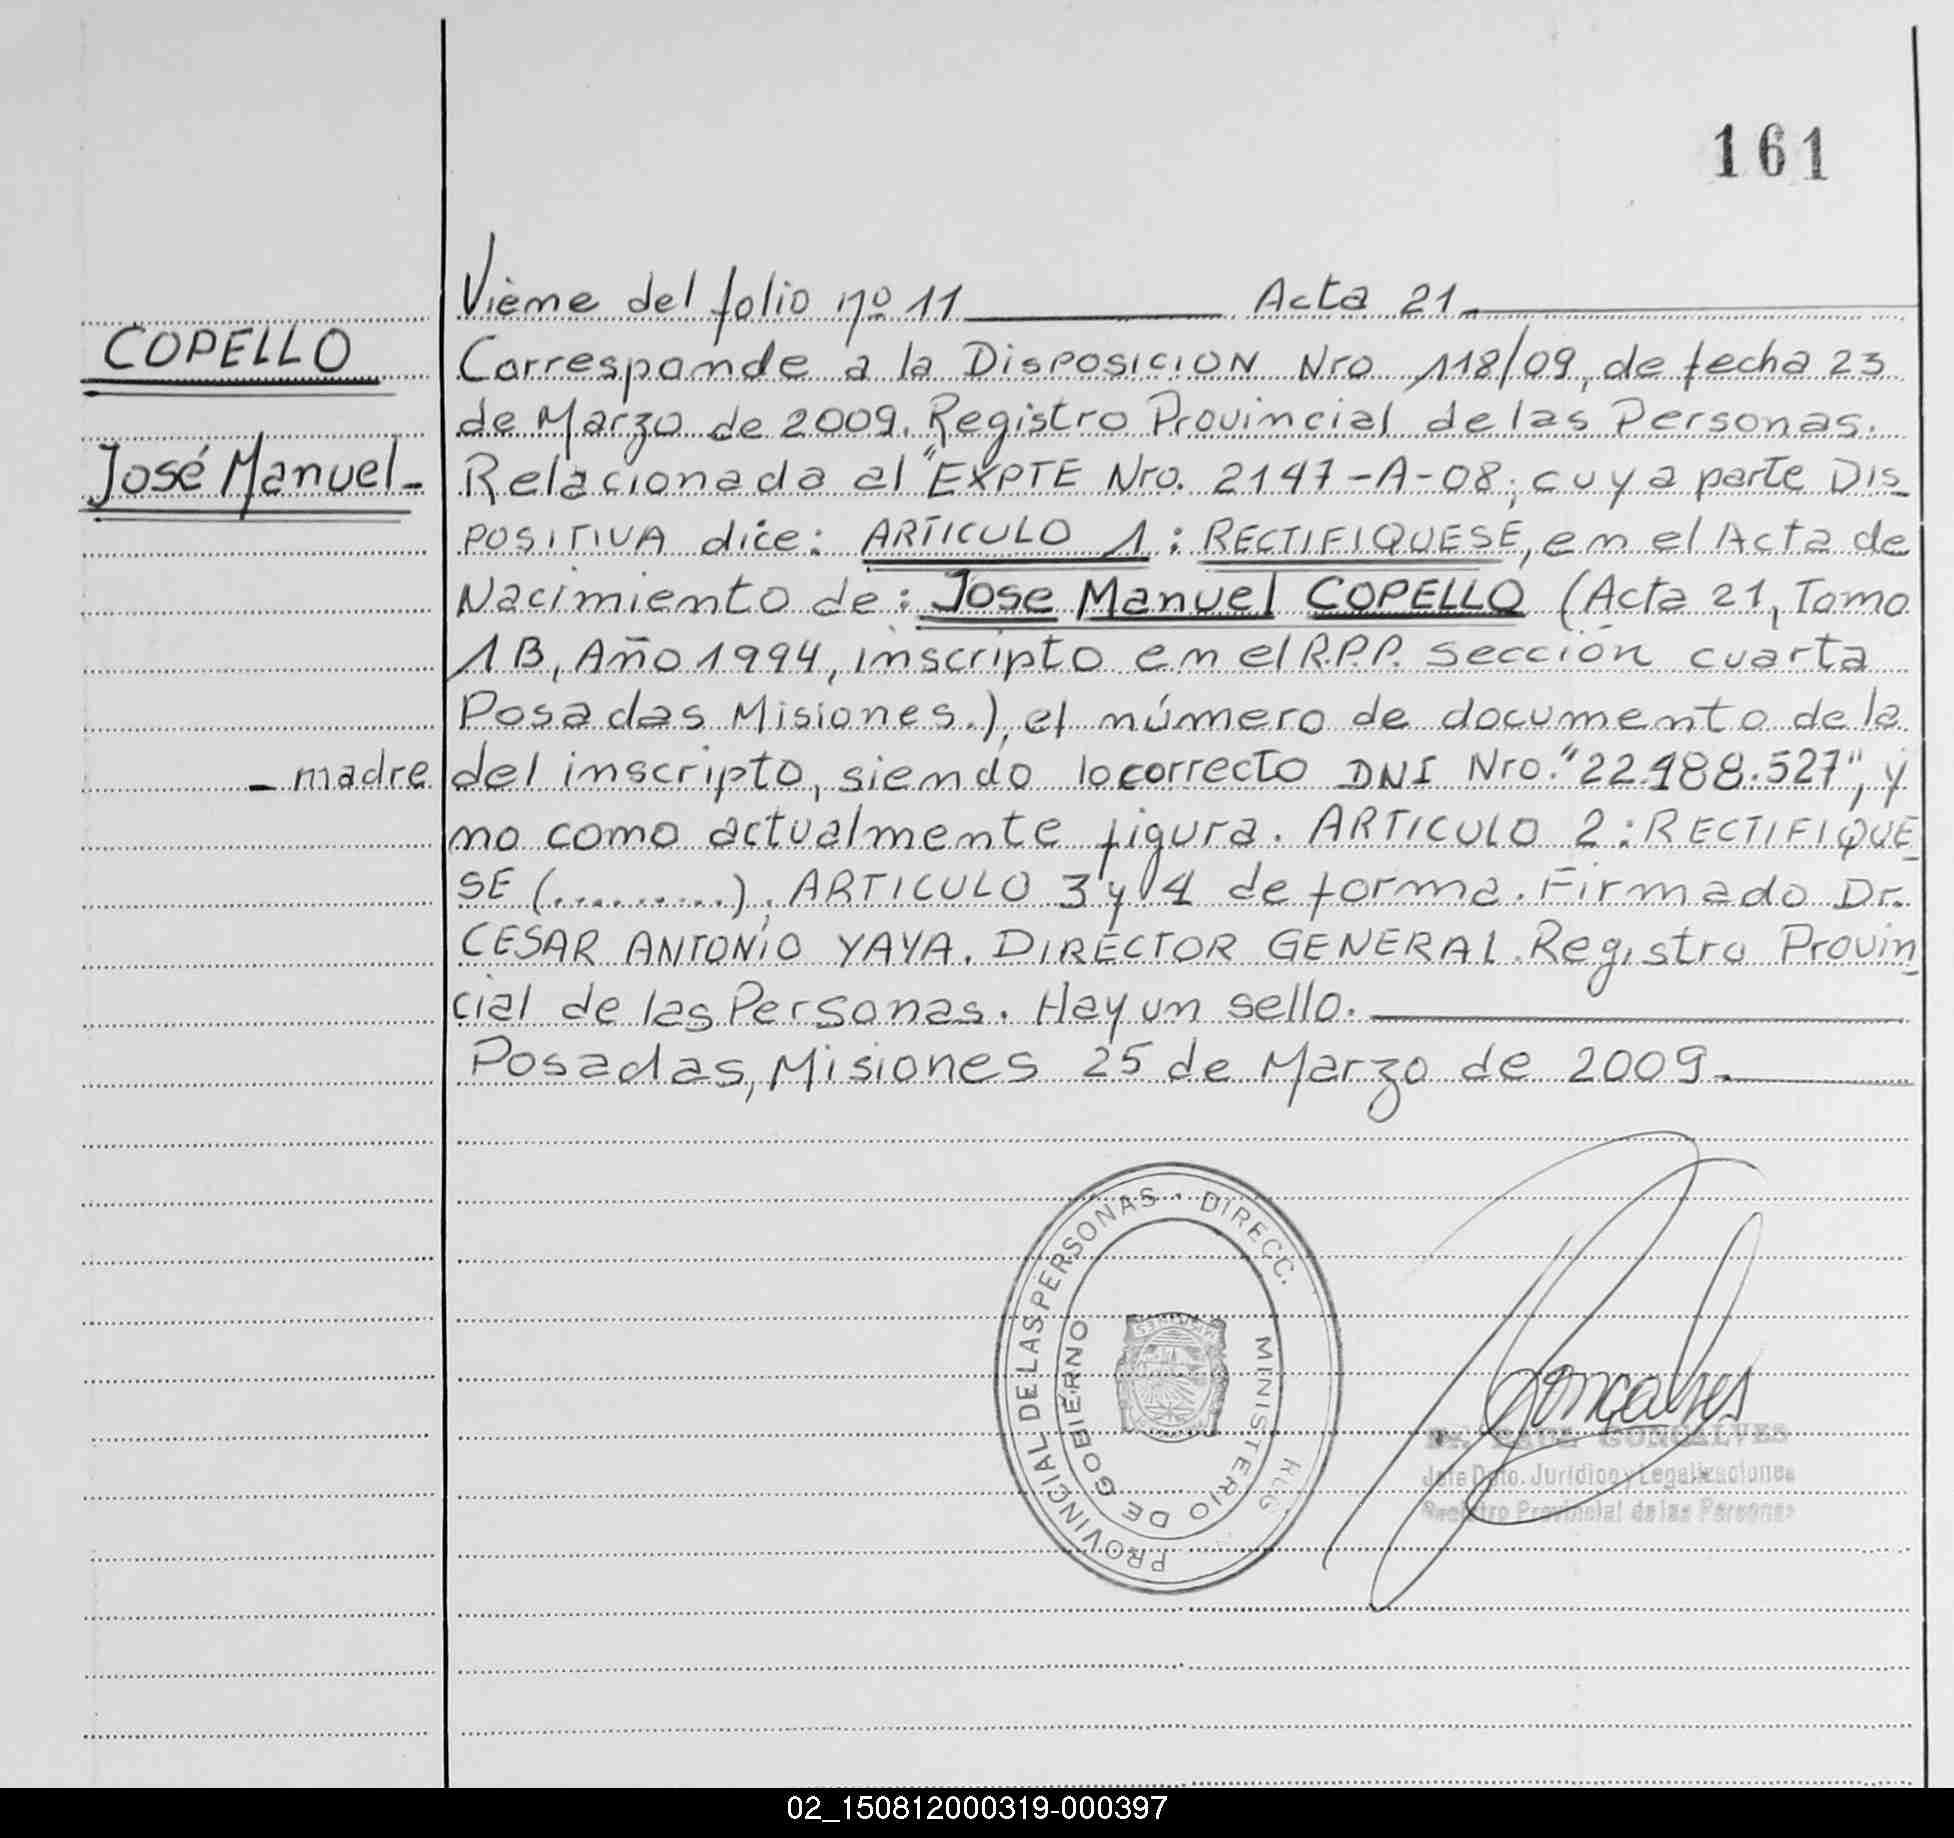 161
Viene del folio nº 11 Acta 21
COPELLO
Corresponde a la DISPOSICION Nro 118/09, de fecha 23
de Marzo de 2009. Registro Provincial de las Personas.
José Manuel
Relacionada al "EXPTE Nro. 2147-A-08; cuya parte DIS_
POSITIVA dice: ARTICULO 1: RECTIFIQUESE, en el Acta de
Nacimiento de: Jose Manuel COPELLO (Acta 21, Tomo
1B, Año 1994, inscripto en el R.P.P. Sección cuarta
Posadas Misiones.), el número de documento de la
- madre del inscripto, siendo lo correcto DNI Nro. "22.188.527", y
no como actualmente figura. ARTICULO 2: RECTIFIQUE_
SE (..........), ARTICULO 3 y 4 de forma. Firmado Dr.
CESAR ANTONIO YAYA. DIRECTOR GENERAL. Registro Provin_
cial de las Personas. Hay un sello.
Posadas, Misiones 25 de Marzo de 2009.
DIRECC. REG. PROVINCIAL DE LAS PERSONAS
MINISTERIO DE GOBIERNO
MISIONES
Goncalves
Dr. RAUL GONCALVES
Jefe Dpto. Jurídico y Legalizaciones
Registro Provincial de las Personas
02_150812000319-000397